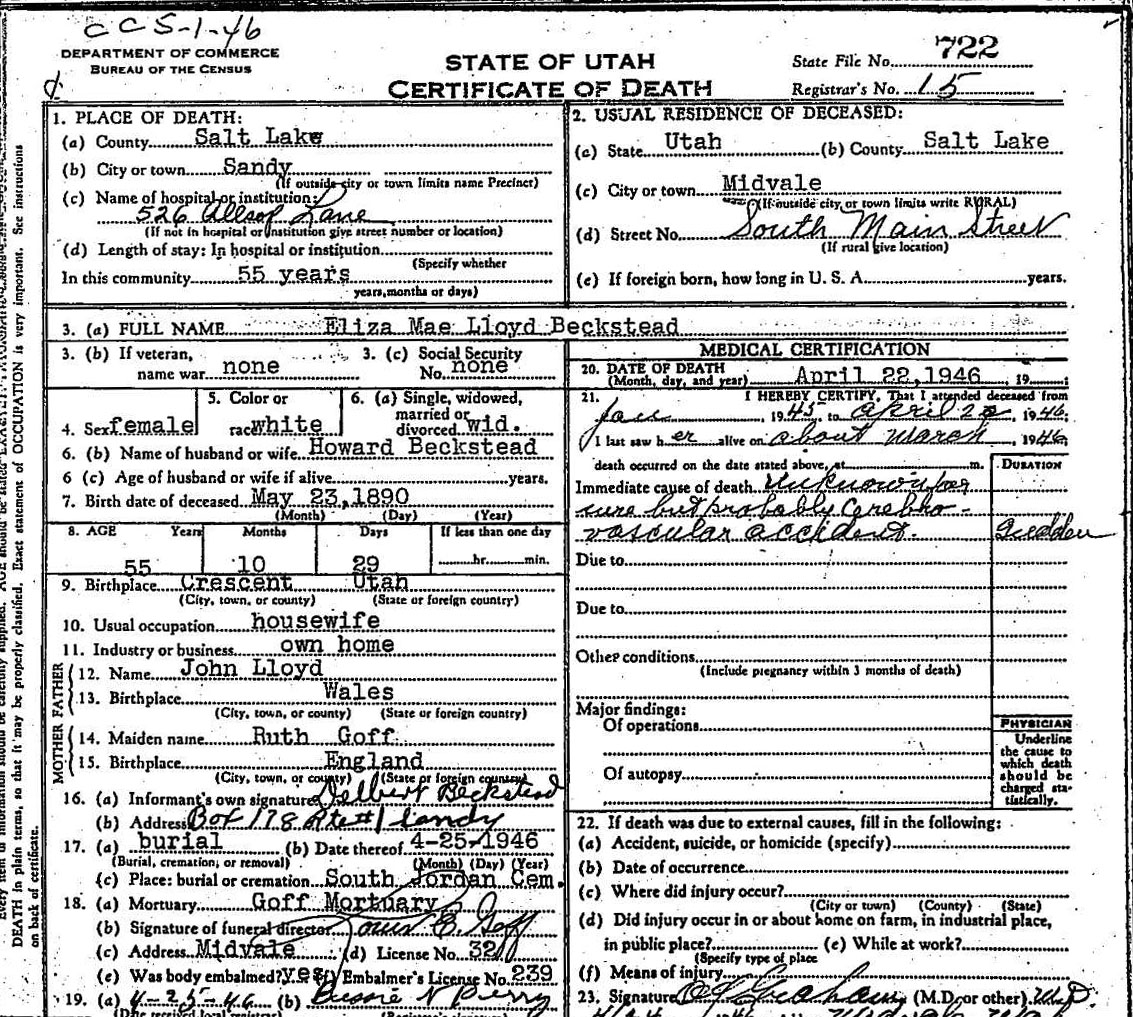 CCS-1-46
DEPARTMENT OF COMMERCE
BUREAU OF THE CENSUS
STATE OF UTAH
CERTIFICATE OF DEATH
State File No. 722
Registrar's No. 15
1. PLACE OF DEATH:
(a) County Salt Lake
(b) City or town Sandy
(If outside city or town limits name Precinct)
(c) Name of hospital or institution:
526 Allsop Lane
(If not in hospital or institution give street number or location)
(d) Length of stay: In hospital or institution
(Specify whether
In this community 55 years
years, months or days)
2. USUAL RESIDENCE OF DECEASED:
(a) State Utah (b) County Salt Lake
(c) City or town Midvale
(If outside city or town limits write RURAL)
(d) Street No. South Main Street
(If rural give location)
(e) If foreign born, how long in U. S. A. years.
3. (a) FULL NAME Eliza Mae Lloyd Beckstead
3. (b) If veteran, 3. (c) Social Security
name war none No. none
5. Color or 6. (a) Single, widowed,
married or
4. Sex female race white divorced wid.
6. (b) Name of husband or wife Howard Beckstead
6 (c) Age of husband or wife if alive years.
7. Birth date of deceased May 23, 1890
(Month) (Day) (Year)
8. AGE Years Months Days If less than one day
55 10 29 hr. min.
9. Birthplace Crescent Utah
(City, town, or county) (State or foreign country)
10. Usual occupation housewife
11. Industry or business own home
FATHER
12. Name John Lloyd
13. Birthplace Wales
(City, town, or county) (State or foreign country)
MOTHER
14. Maiden name Ruth Goff
15. Birthplace England
(City, town, or county) (State or foreign country)
16. (a) Informant's own signature Delbert Beckstead
(b) Address Box 178 Rte #1 Sandy
17. (a) burial (b) Date thereof 4-25-1946
(Burial, cremation, or removal) (Month) (Day) (Year)
(c) Place: burial or cremation South Jordan Cem.
18. (a) Mortuary Goff Mortuary
(b) Signature of funeral director Goff
(c) Address Midvale (d) License No. 321
(e) Was body embalmed? yes (f) Embalmer's License No. 239
19. (a) 4-25-46 (b) Perry
MEDICAL CERTIFICATION
20. DATE OF DEATH
(Month, day, and year) April 22, 1946, 19 ;
21. I HEREBY CERTIFY, That I attended deceased from
Jan 1945 to April 22, 1946;
I last saw her alive on about March, 1946;
death occurred on the date stated above, at m. DURATION
Immediate cause of death Unknown for
sure but probably Cerebro-
vascular accident. Sudden
Due to
Due to
Other conditions
(Include pregnancy within 3 months of death)
Major findings:
Of operations
Of autopsy
PHYSICIAN
Underline
the cause to
which death
should be
charged sta-
tistically.
22. If death was due to external causes, fill in the following:
(a) Accident, suicide, or homicide (specify)
(b) Date of occurrence
(c) Where did injury occur?
(City or town) (County) (State)
(d) Did injury occur in or about home on farm, in industrial place,
in public place? (e) While at work?
(Specify type of place
(f) Means of injury
23. Signature Graham (M.D. or other) M.D.
AGE should be stated EXACTLY.
DEATH in plain terms, so that it may be properly classified. Exact statement of OCCUPATION is very important. See instructions
on back of certificate.